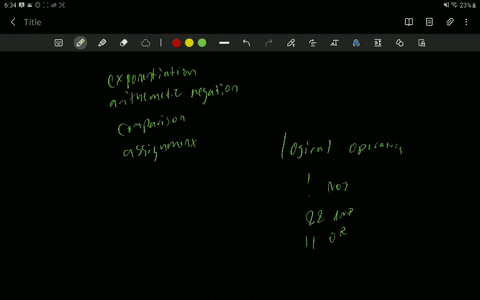 6:34
23%
Title
exponentiation
arithmetic negation
comparison
assignment
logical operators
! NOT
&& AND
|| OR